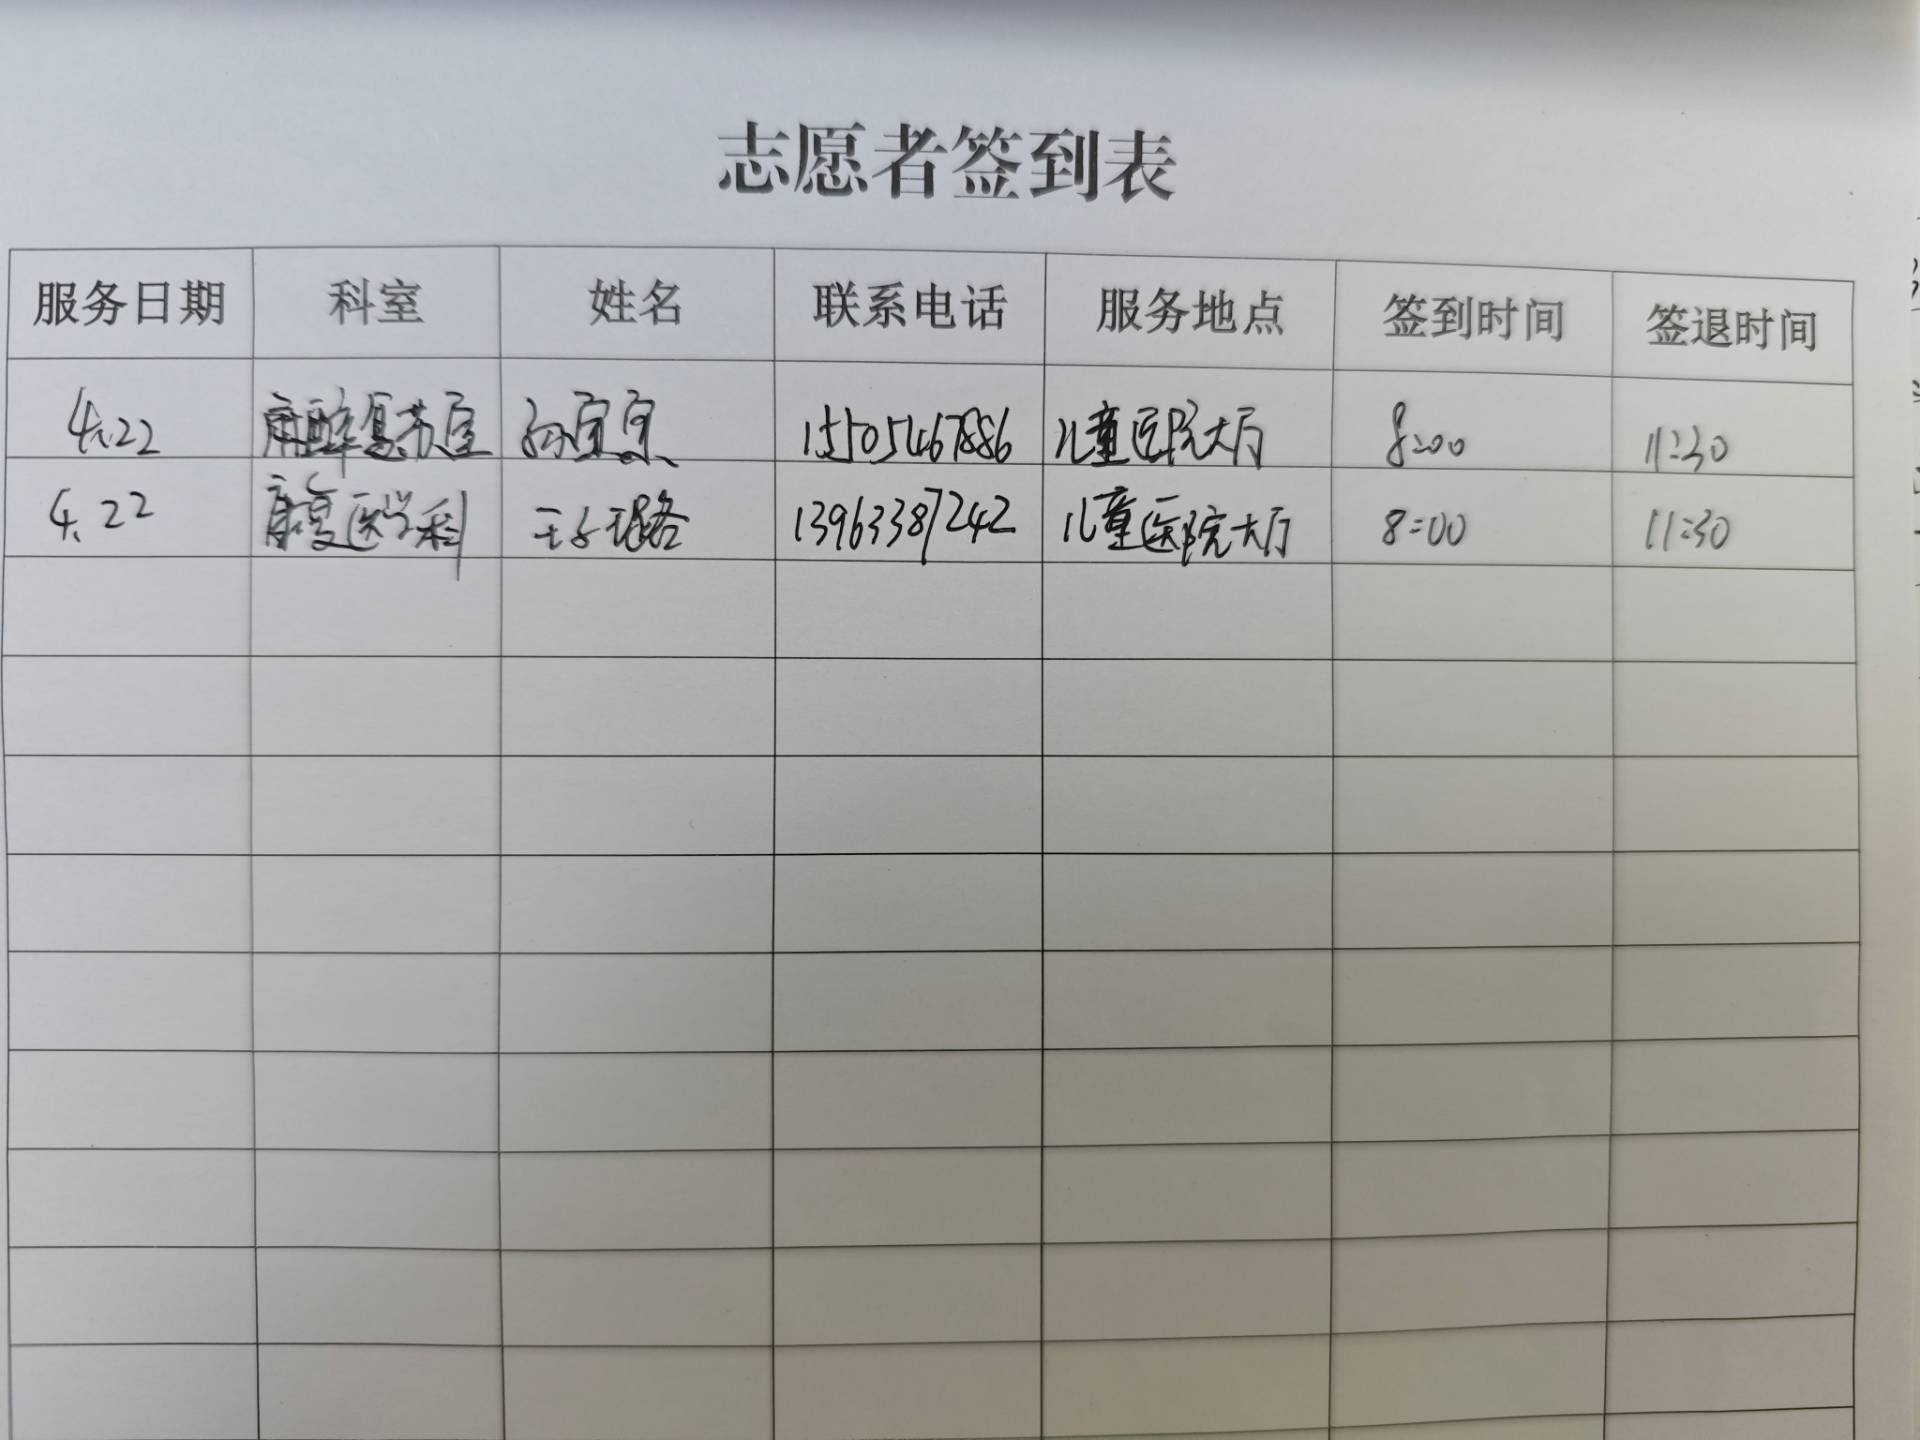 志愿者签到表
服务日期 科室 姓名 联系电话 服务地点 签到时间 签退时间
4.22 麻醉复苏室 孙宜宜 15505467886 儿童医院大厅 8:00 11:30
4.22 康复医学科 王子璐 13963387242 儿童医院大厅 8:00 11:30